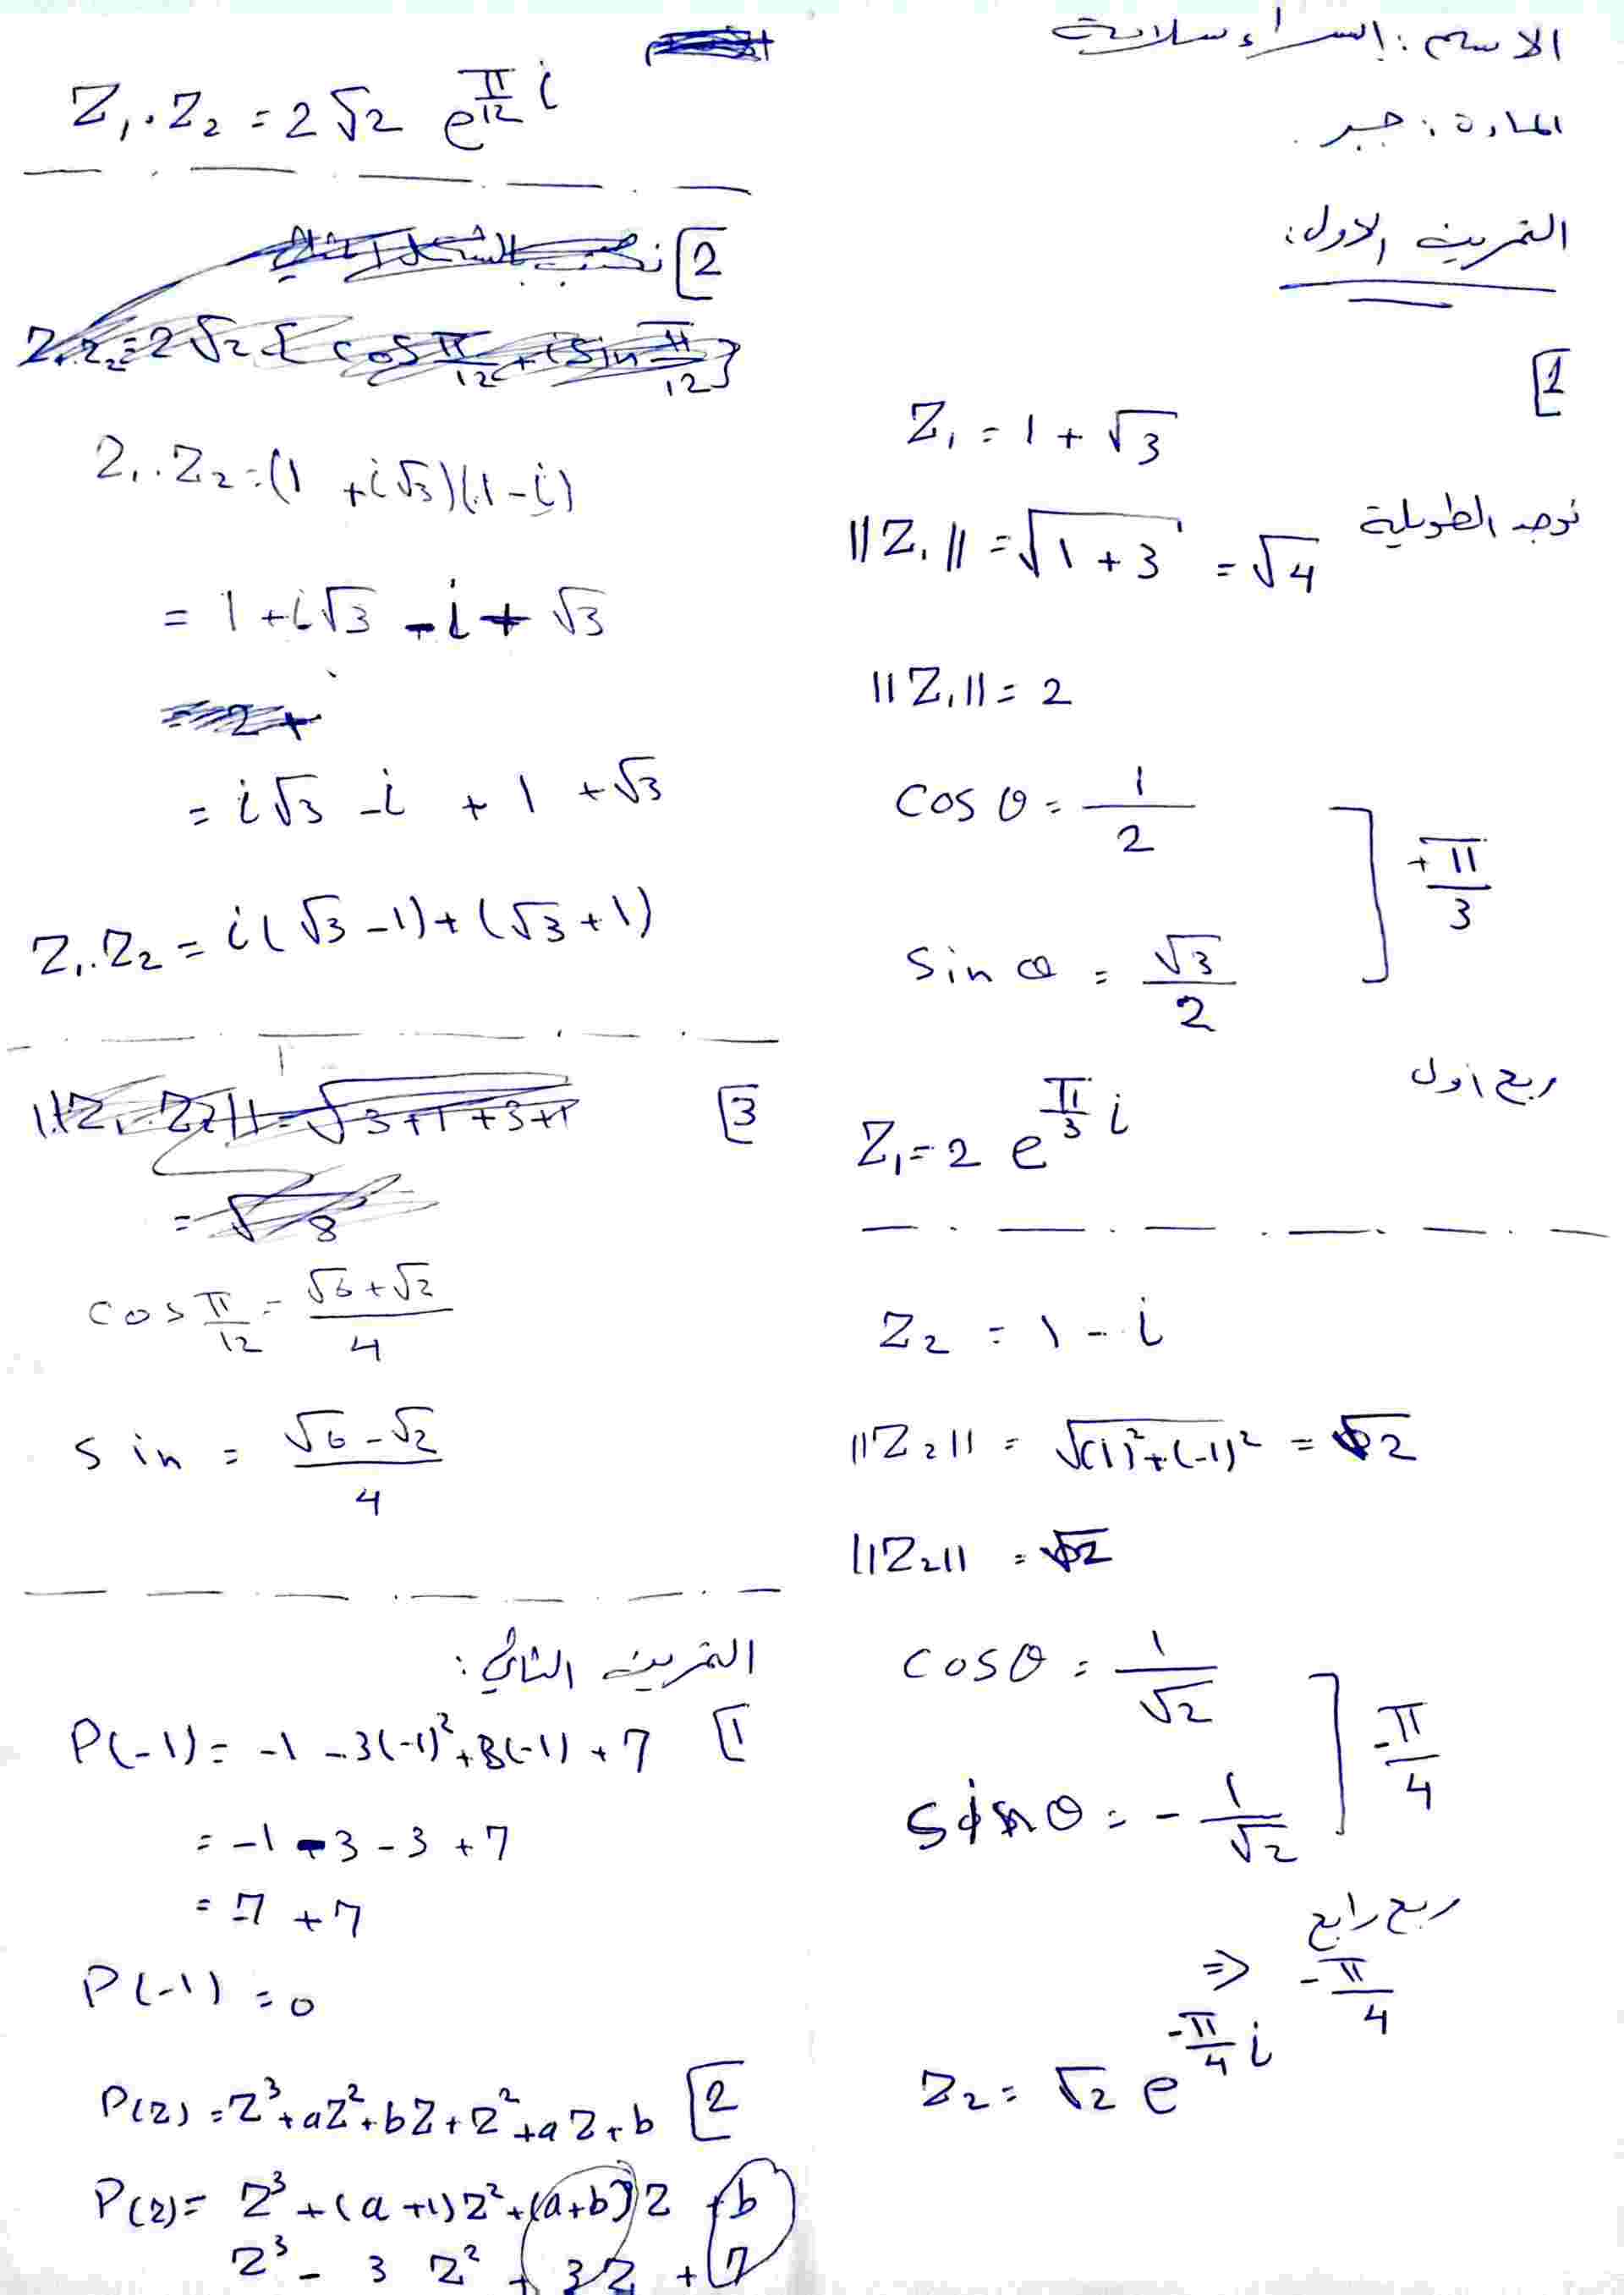 الاسم: إسراء سلامة
المادة: جبر.
التمرين الاول:
[1
Z₁ = 1 + √3
نوجد الطويلة
||Z₁|| = √(1 + 3) = √4
||Z₁|| = 2
cos θ = 1/2
sin θ = √3/2 ] +π/3
ربع اول
Z₁ = 2 e^(π/3 i)
Z₂ = 1 - i
||Z₂|| = √((1)² + (-1)²) = √2
||Z₂|| = √2
cos θ = 1/√2
sin θ = - 1/√2 ] -π/4
ربع رابع
⇒ -π/4
Z₂ = √2 e^(-π/4 i)
Z₁.Z₂ = 2√2 e^(π/12 i)
[2
Z₁.Z₂ = 2√2 {cos π/12 + i sin π/12}
Z₁.Z₂ = (1 + i√3)(1 - i)
= 1 + i√3 - i + √3
= 2 +
= i√3 - i + 1 + √3
Z₁.Z₂ = i(√3 - 1) + (√3 + 1)
[3
||Z₁.Z₂|| = √(3+1+3+1)
= √8
cos π/12 = (√6 + √2)/4
sin = (√6 - √2)/4
التمرين الثاني:
[1 P(-1) = -1 - 3(-1)² + 3(-1) + 7
= -1 - 3 - 3 + 7
= -7 + 7
P(-1) = 0
[2 P(z) = Z³ + aZ² + bZ + Z² + aZ + b
P(z) = Z³ + (a + 1)Z² + (a + b)Z + b
Z³ - 3 Z² + 3Z + 7